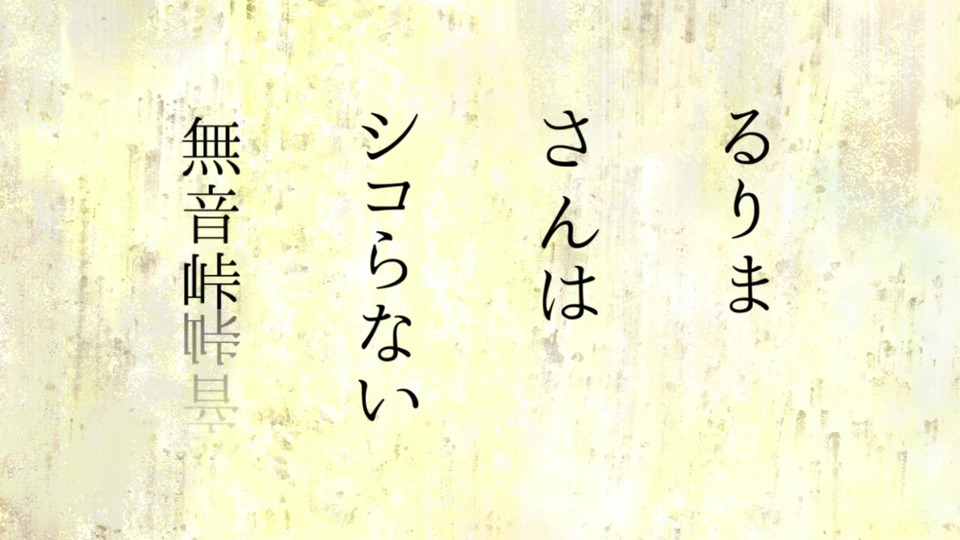 るりま
さんは
シコらない
無音峠